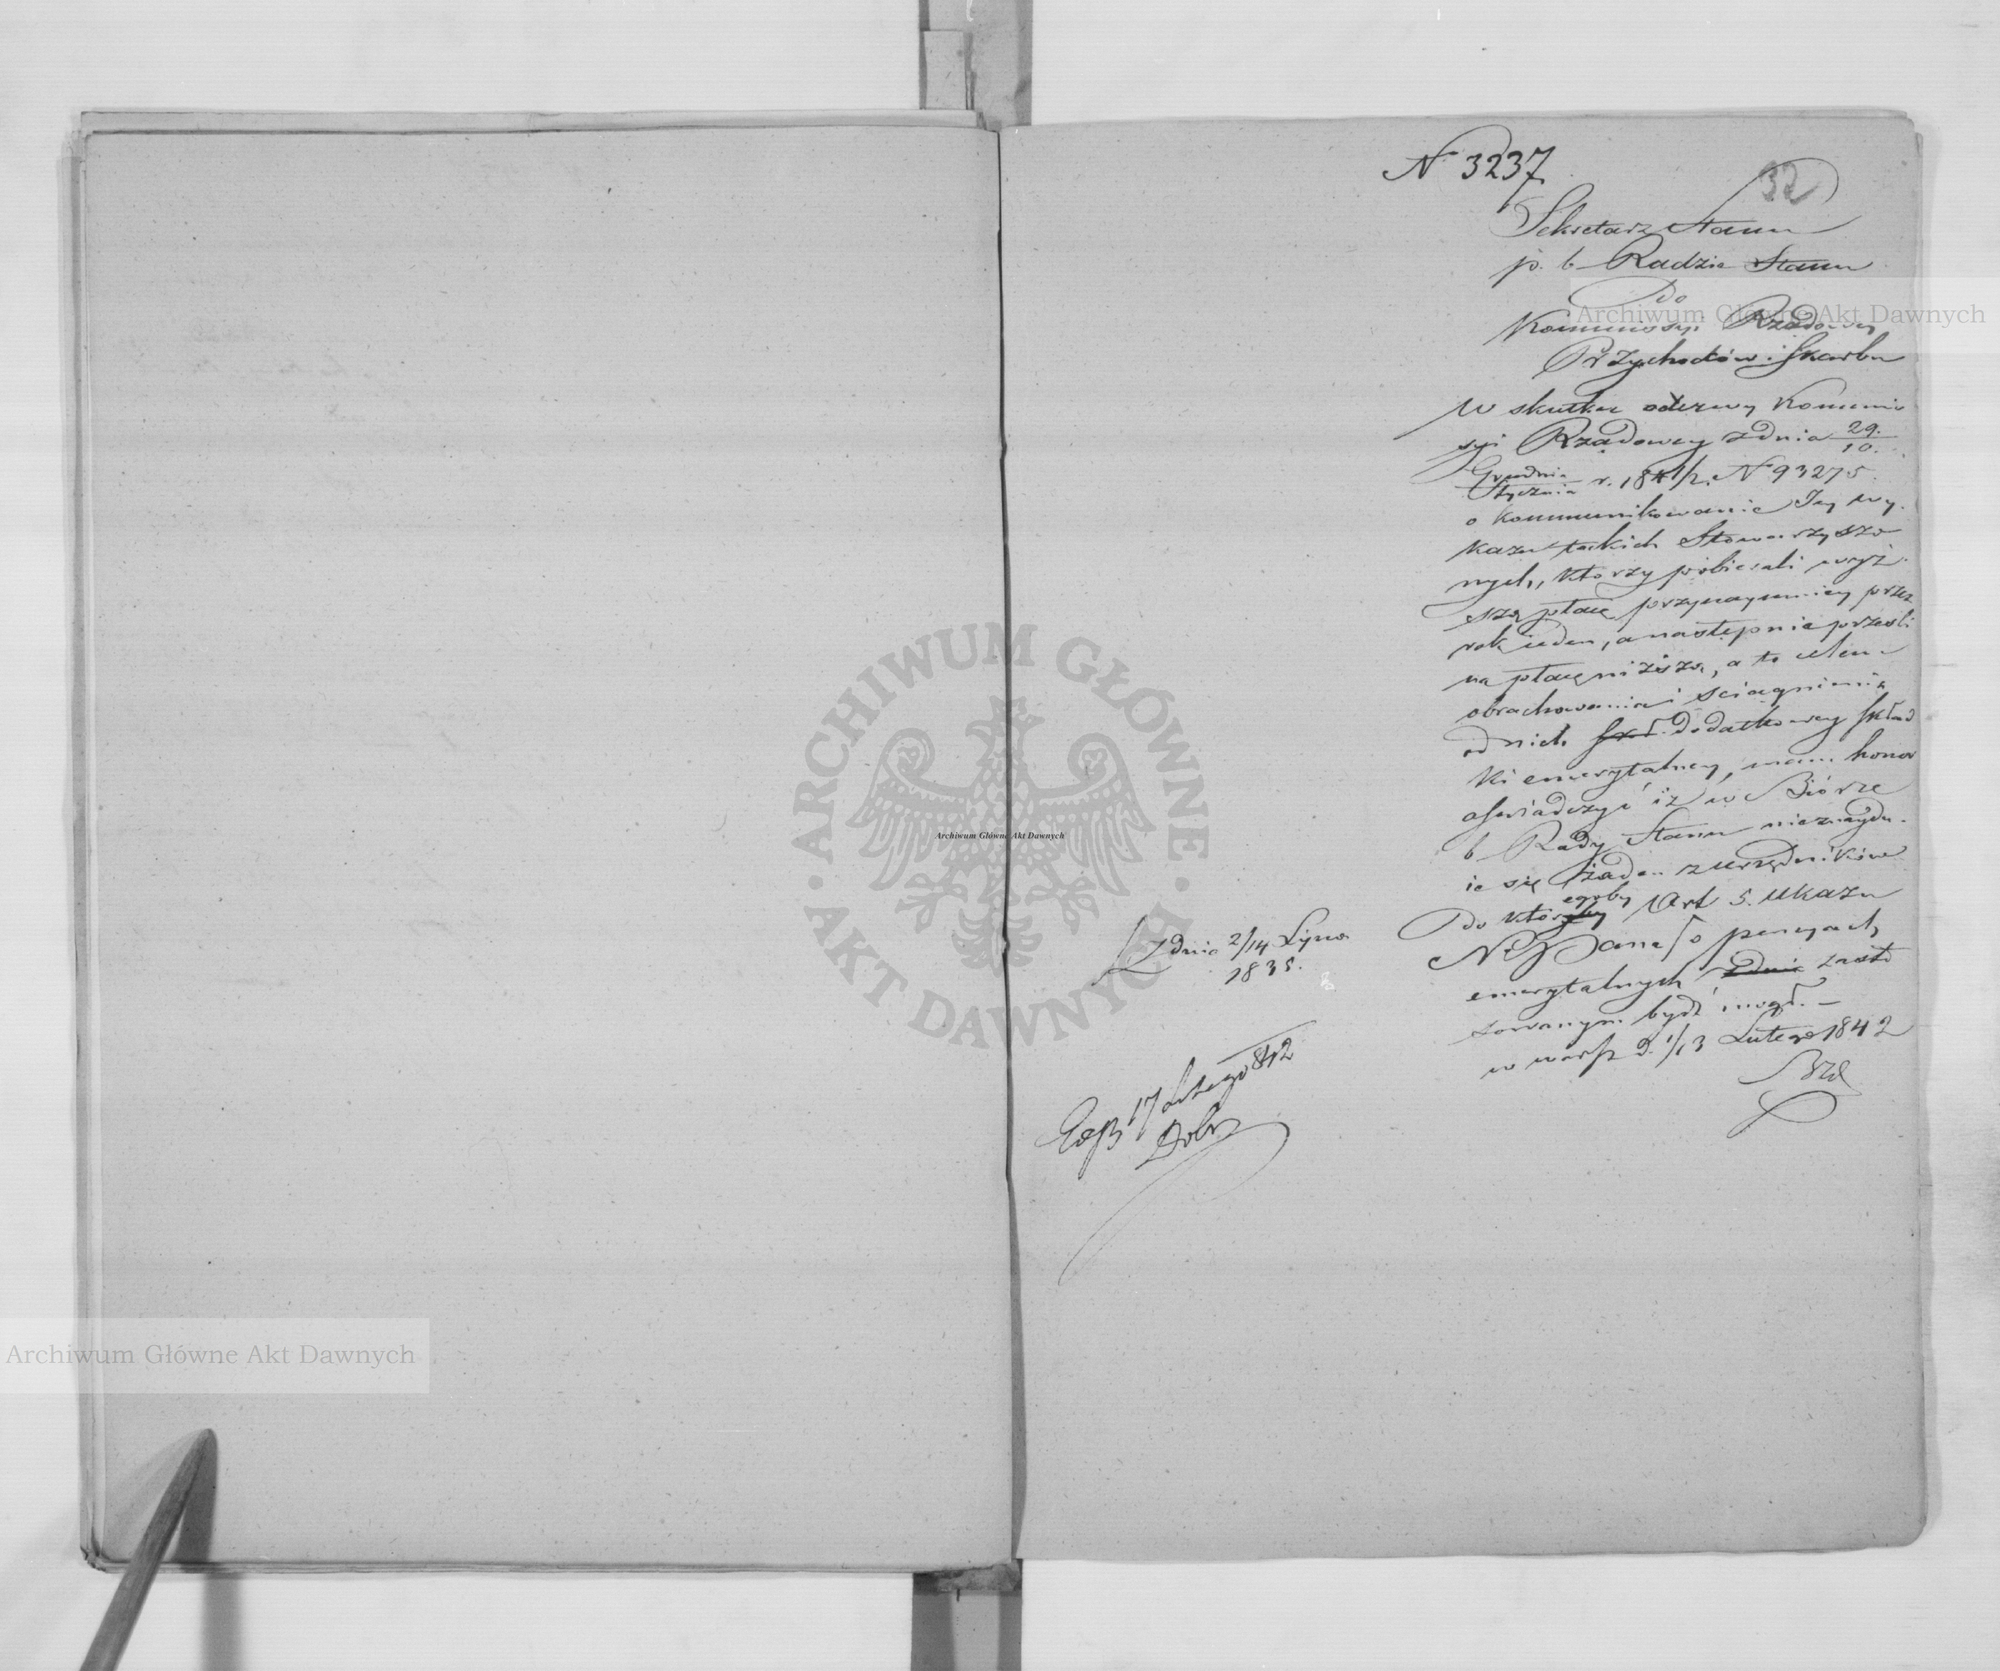 N 3237
32
Sekretarz Stanu
p. b. Radzie Stanu
do
Kommissyi Rządowey
Przychodów i Skarbu
W skutku odezwy Kommis
syi Rządowey z dnia 29./10.
Grudnia/Stycznia r. 1841/2. N 93275
o kommunikowanie Jey wy,
kazu takich Stowarzyszo
nych, którzy pobierali wyż,
szą płacę przynaymniey przez
rok ieden, a następnie przeszli
na płacę niższą, a to celem
obrachowania i sciągnienia
od nich Skł. dodatkowey skład
ki emerytalney, mam honor
oświadczyć iż w Biórze
b. Rady Stanu nieznaydu,
ie się żaden z urzędników
do któregoby Art 5. Ukazu
N Pana o pensyach
emerytalnych z dnia zasto
sowanym bydź mógł. —
w Warsz d. 1/13 Lutego 1842
z dnia 2/14 Lipca
1835.
17 Lutego 842
Archiwum Główne Akt Dawnych
Archiwum Główne Akt Dawnych
Archiwum Główne Akt Dawnych
ARCHIWUM GŁÓWNE
AKT DAWNYCH